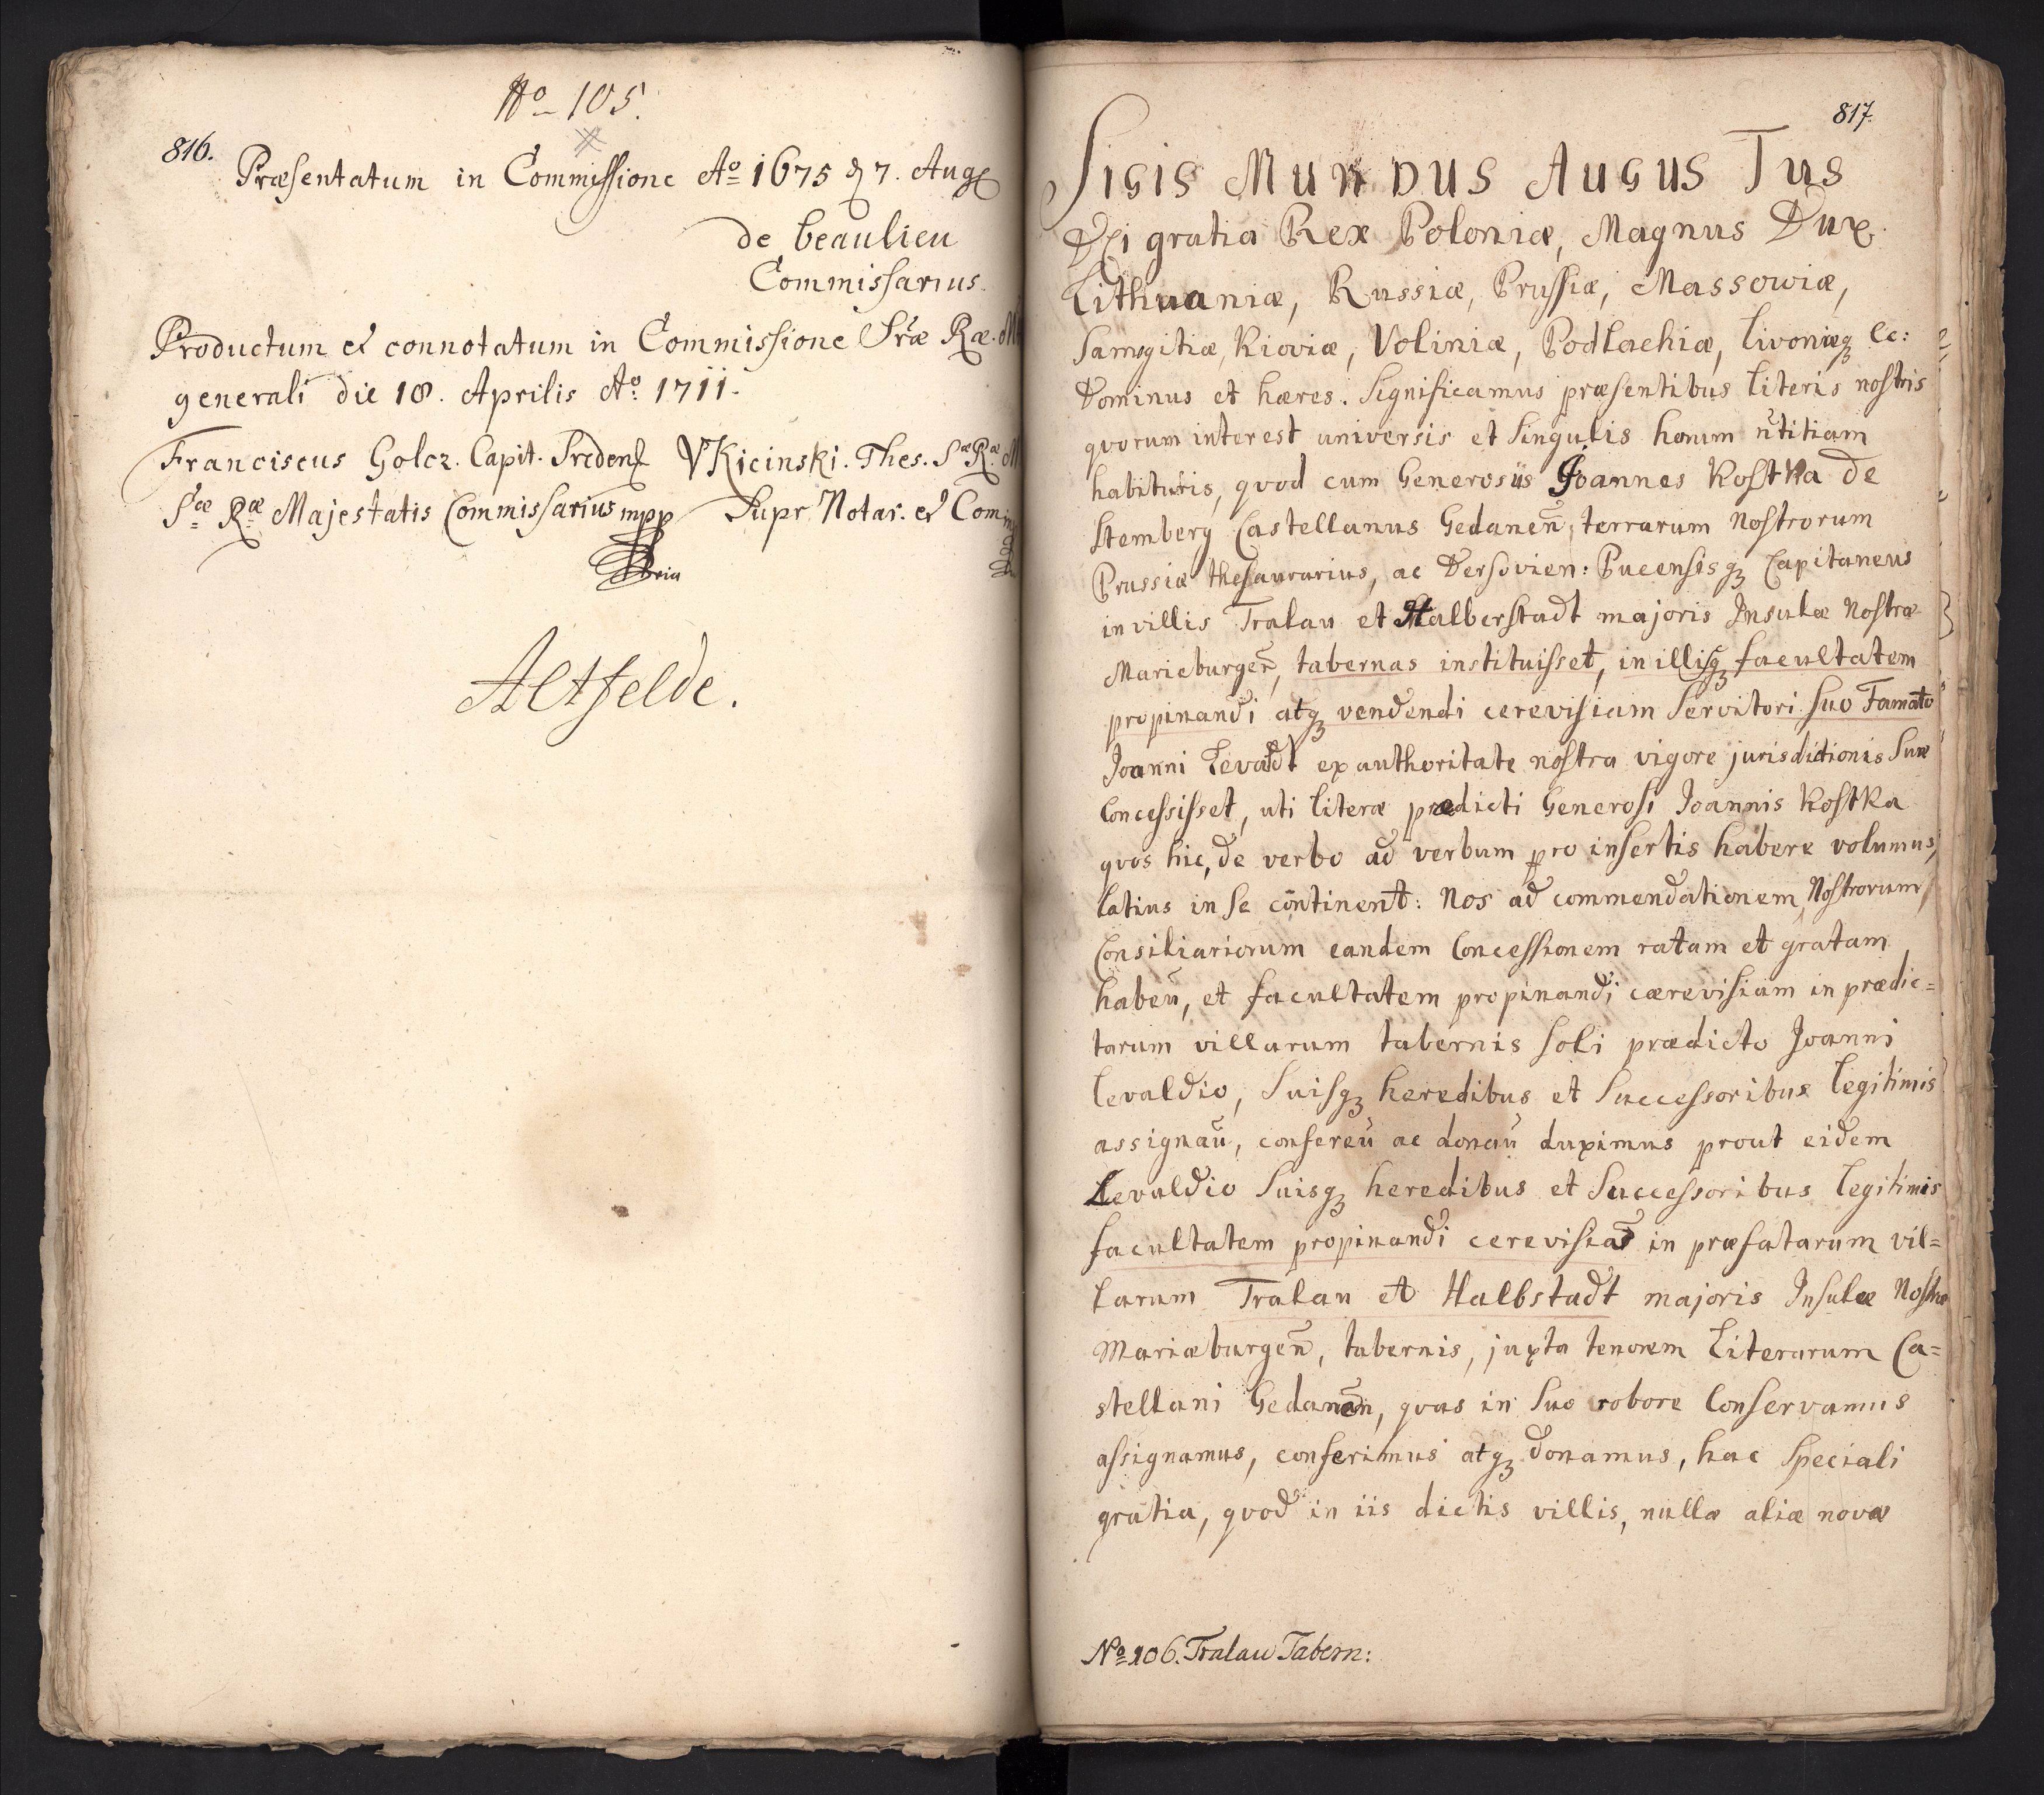 No 105.
816.
Præsentatum in Commissione Ao 1675 d 7. Aug
de beaulieu
Commissarius.
Productum et connotatum in Commissione Sræ Ræ. M
generali die 18. Aprilis Ao. 1711.
Franciscus Golcz. Capit. Sredens VKicinski. Thes. Sæ Ræ M
Sæ Ræ Majestatis Commissarius mpp Supr Notar. et Com
pria
Altfelde.
817.
SIGISMUNDUS AUGUSTUS
Dei gratia Rex Poloniæ, Magnus Dux
Lithuaniæ, Russiæ, Prussiæ, Massowiæ,
Samogitiæ, Kioviæ, Voliniæ, Podlachiæ, Livoniæq3 &c:
Dominus et hæres. Significamus præsentibus literis nostris
quorum interest universis et singulis horum n̄titiam
habituris, quod cum Generosus Joannes Kostka de
Stemberg Castellanus Gedanen̄, terrarum Nostrorum
Prussiæ thesaurarius, ac Dersovien: Pucensisq3 Capitaneus
in villis Tralau et Halberstadt majoris Insulæ Nostræ
Marieburgen̄, tabernas instituisset, in illisq3 facultatem
propinandi atq3 vendendi cerevisiam Servitori suo Famato
Joanni Levaldt ex authoritate nostra vigore jurisdictionis Suæ
Concessisset, uti literæ prædicti Generosi Joannis Kostka
quos hic, de verbo ad verbum pro insertis habere volumus,
latius in se continent: Nos ad commendationem Nostrorum
Consiliariorum eandem Concessionem ratam et gratam
haben̄, et facultatem propinandi cærevisiam in prædic=
tarum villarum tabernis soli prædicto Joanni
Levaldio, Suisq3 heredibus et Successoribus Legitimis
assignan̄, conferen̄ ac donan̄ duximus prout eidem
Levaldio Suisq3 heredibus et Successoribus Legitimis
facultatem propinandi cerevisias in præfatarum vil=
larum Tralau et Halbstadt majoris Insulæ Nostræ
Mariæburgen̄, tabernis, juxta tenorem Literarum Ca=
stellani Gedanen̄, quas in suo robore Conservamus
assignamus, conferimus atq3 donamus, hac Speciali
gratia, quod in iis dictis villis, nullæ aliæ novæ
No 106. Tralau Tabern: